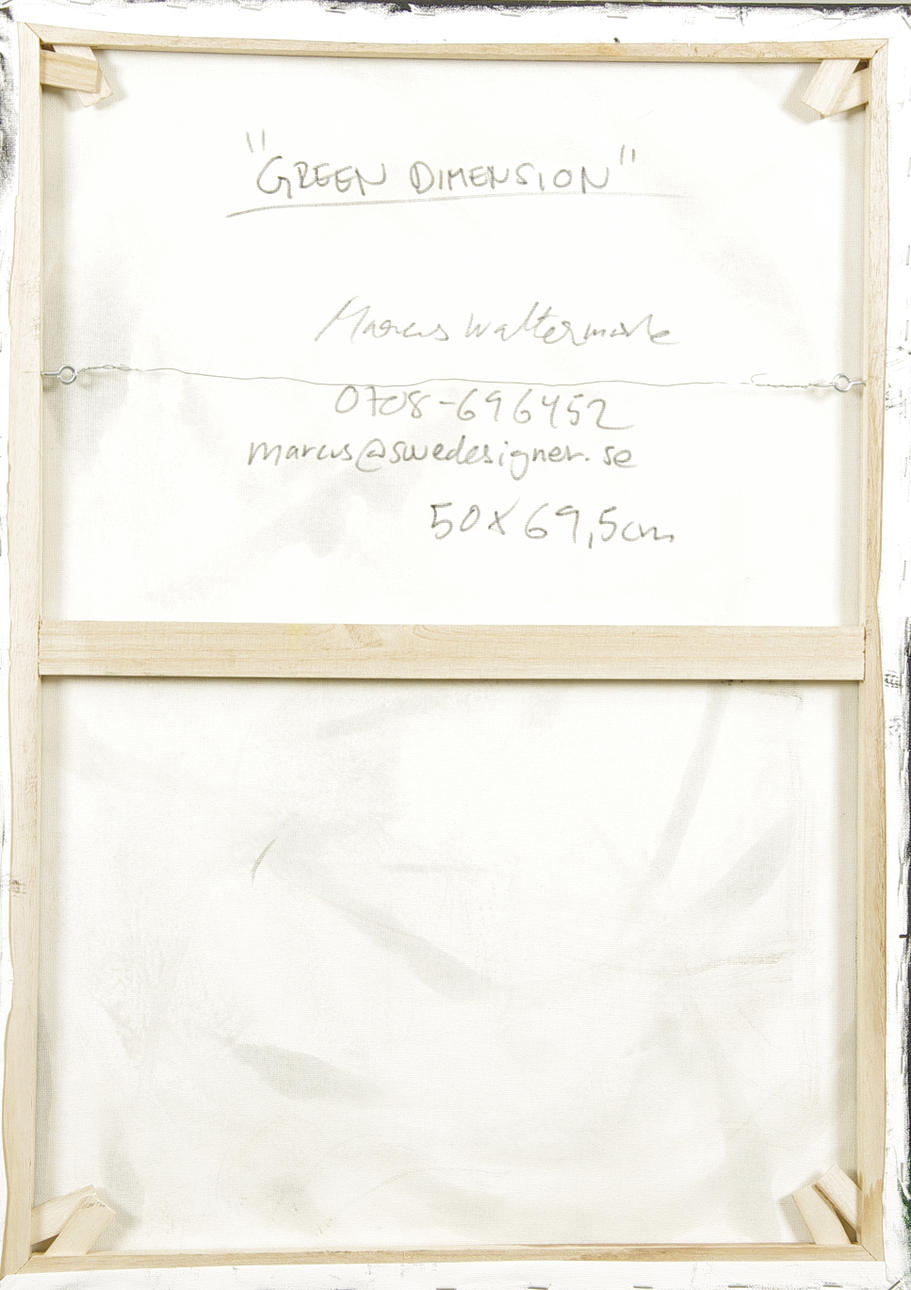 "GREEN DIMENSION"
Marcus Wallermark
0708-696452
marcus@swedesigner.se
50x69,5cm